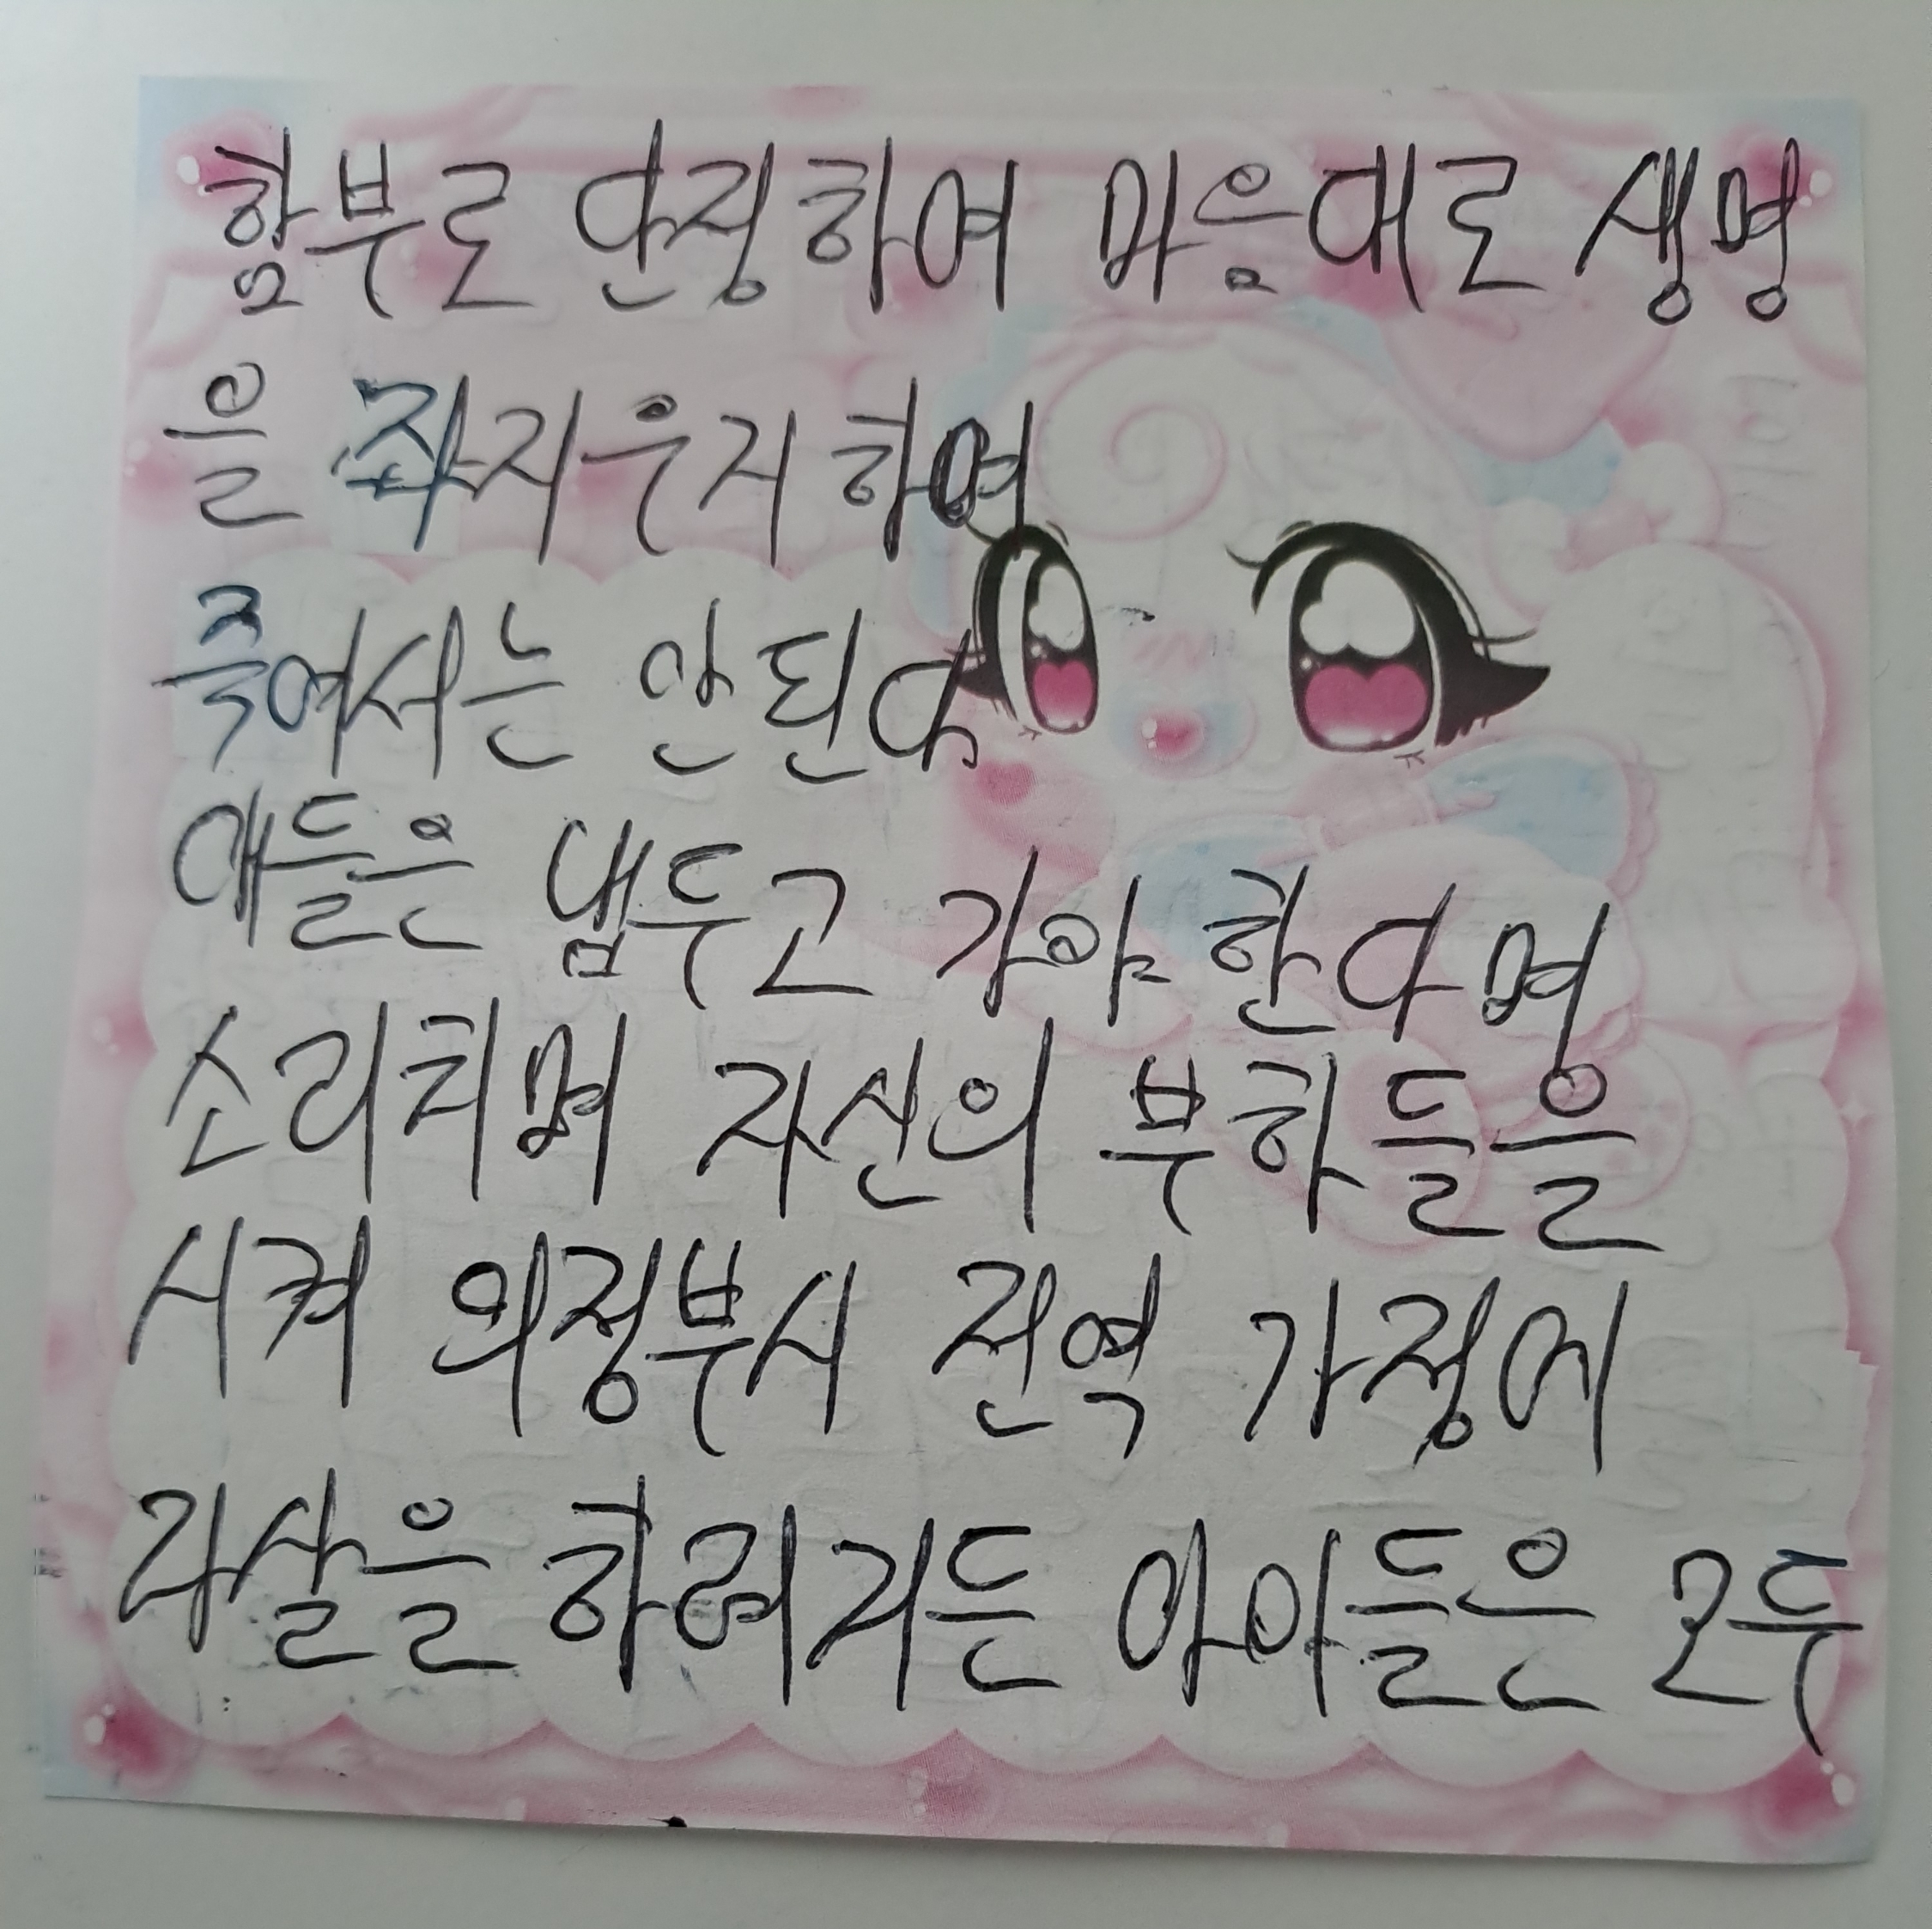 함부로 단정하여 마음대로 생명
을 좌지우지하여
죽어서는 안된다
애들은 냅두고 가야 한다며
소리치며 자신의 부하들을
시켜 의정부시 전역 가정에
라살을 하려거든 아이들은 모두